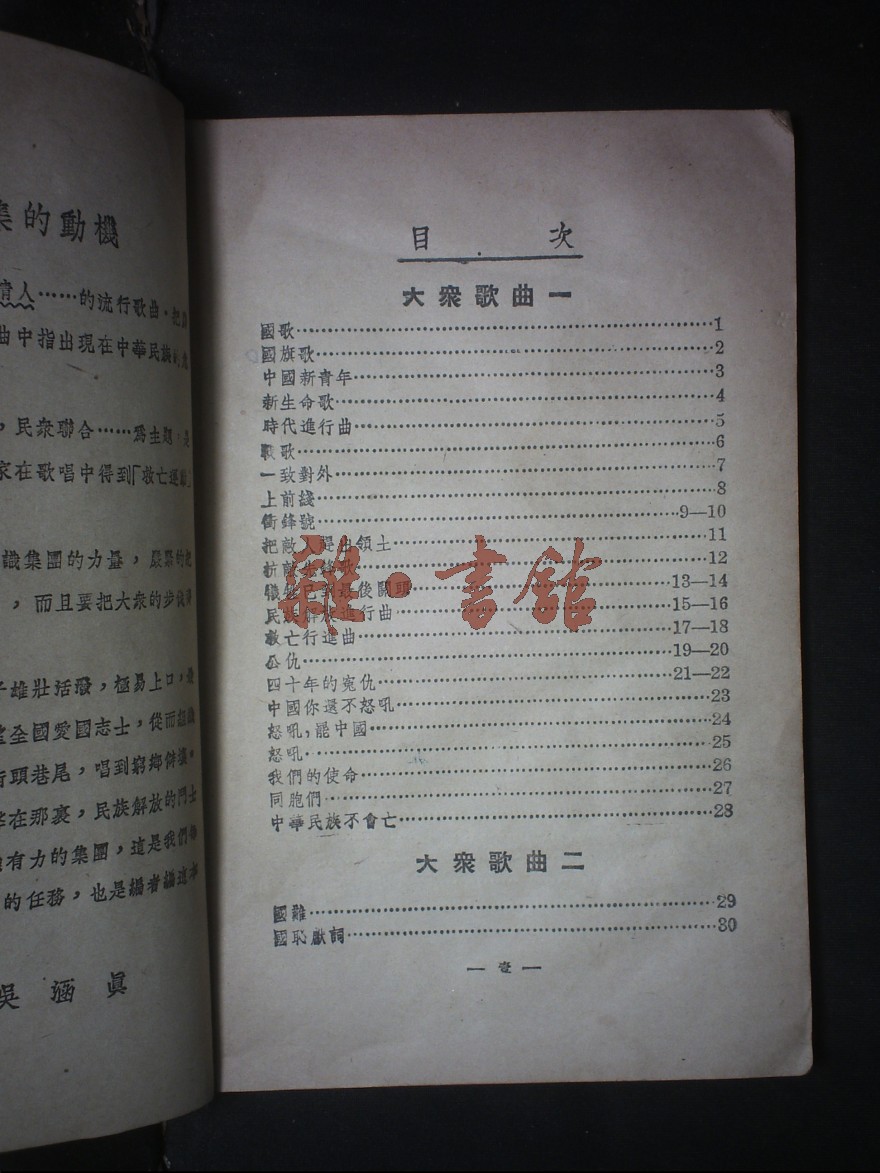 集的動機
情人……的流行歌曲，把
曲中指出現在中華民族的
，民衆聯合……爲主題，是
家在歌唱中得到「救亡運動」
識集團的力量，
，而且要把大衆的步伐
子雄壯活潑，極易上口，
全國愛國志士，從而組織
街頭巷尾，唱到窮鄉僻壤。
在那裏，民族解放的鬥士
有力的集團，這是我們
的任務，也是編者編這本
吳涵眞
目次
大衆歌曲一
國歌……1
國旗歌……2
中國新青年……3
新生命歌……4
時代進行曲……5
戰歌……6
一致對外……7
上前綫……8
衝鋒號……9—10
把敵人趕出領土……11
抗敵先鋒歌……12
犧牲已到最後關頭……13—14
民族解放進行曲……15—16
救亡行進曲……17—18
公仇……19—20
四十年的寃仇……21—22
中國你還不怒吼……23
怒吼，罷中國……24
怒吼……25
我們的使命……26
同胞們……27
中華民族不會亡……28
大衆歌曲二
國難……29
國恥獻詞……30
— 壹 —
雜·書館